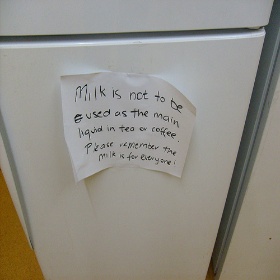 Milk is not to be
used as the main
liquid in tea or coffee.
Please remember the
milk is for everyone!